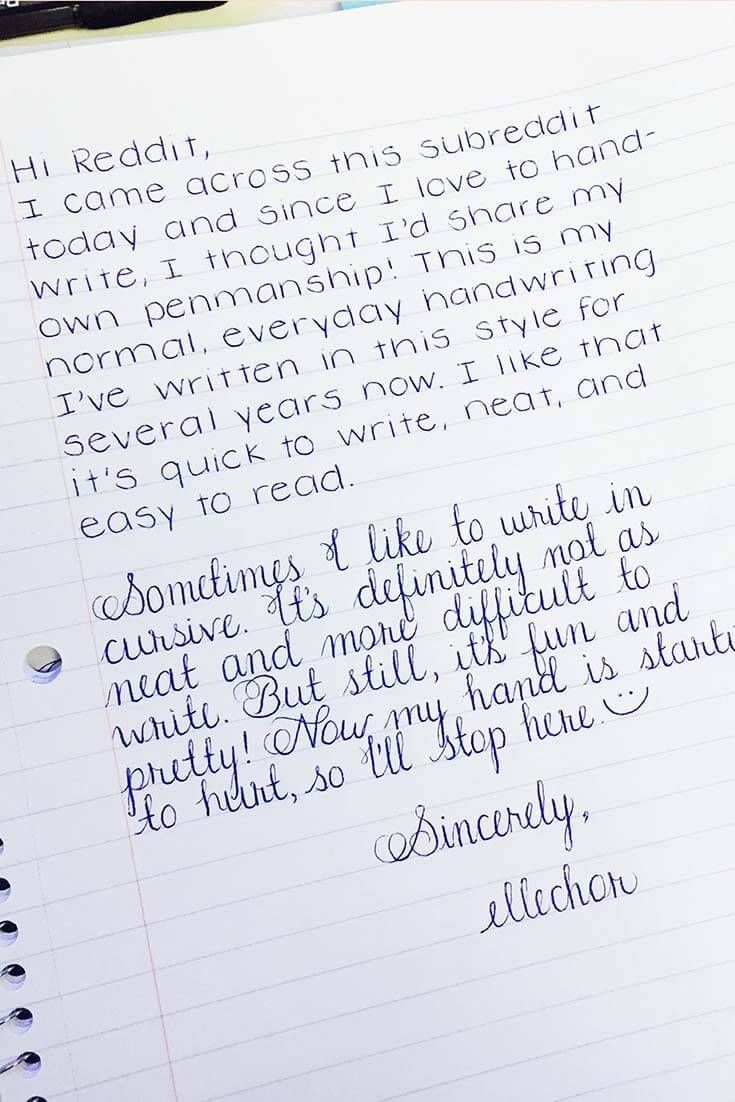 Hi Reddit,
I came across this subreddit
today and since I love to hand-
write, I thought I'd share my
own penmanship! This is my
normal, everyday handwriting.
I've written in this style for
several years now. I like that
it's quick to write, neat, and
easy to read.
Sometimes I like to write in
cursive. It's definitely not as
neat and more difficult to
write. But still, it's fun and
pretty! Now my hand is starti
to hurt, so I'll stop here. :)
Sincerely,
ellechor